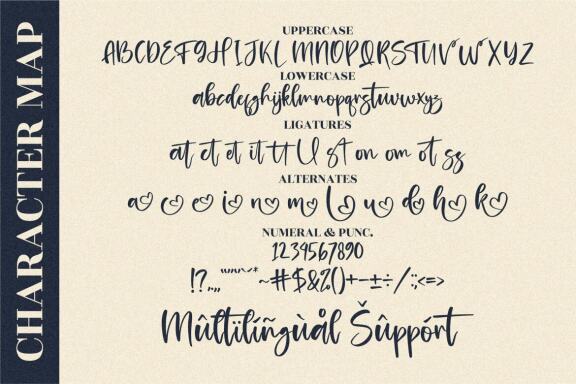 CHARACTER MAP
UPPERCASE
ABCDEFGHIJKLMNOPQRSTUVWXYZ
LOWERCASE
abcdefghijklmnopqrstuvwxyz
LIGATURES
at ct et it tt ll st on om ot ss
ALTERNATES
a c e i n m l u d h k
NUMERAL & PUNC.
1234567890
!?.,,, ~#$&%()+-±÷/:;<=>
Mûltïlíñgùål Šûppórt